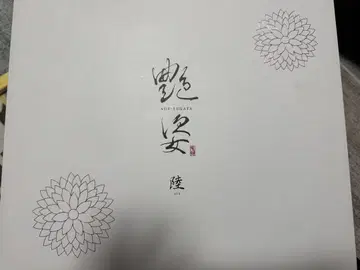 艶
ADE-SUGATA
姿
陸